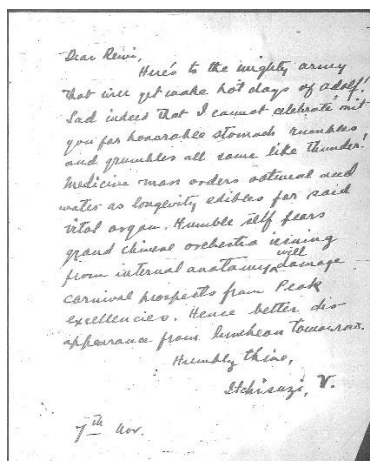 Dear Rewi,
Here's to the mighty army
that will yet make hot days of adolf!
Sad indeed that I cannot celebrate mit
you for honorable stomach rumbles
and grumbles all same like thunder!
Medicine man orders oatmeal and
water as longevity edibles for said
vital organ. Humble self fears
grand chinese orchestra
from internal anatomy will damage
carnival prospects from Peak
excellencies. Hence better dis-
appearance from luncheon tomorrow.
Humbly thine,
V.
7th Nov.